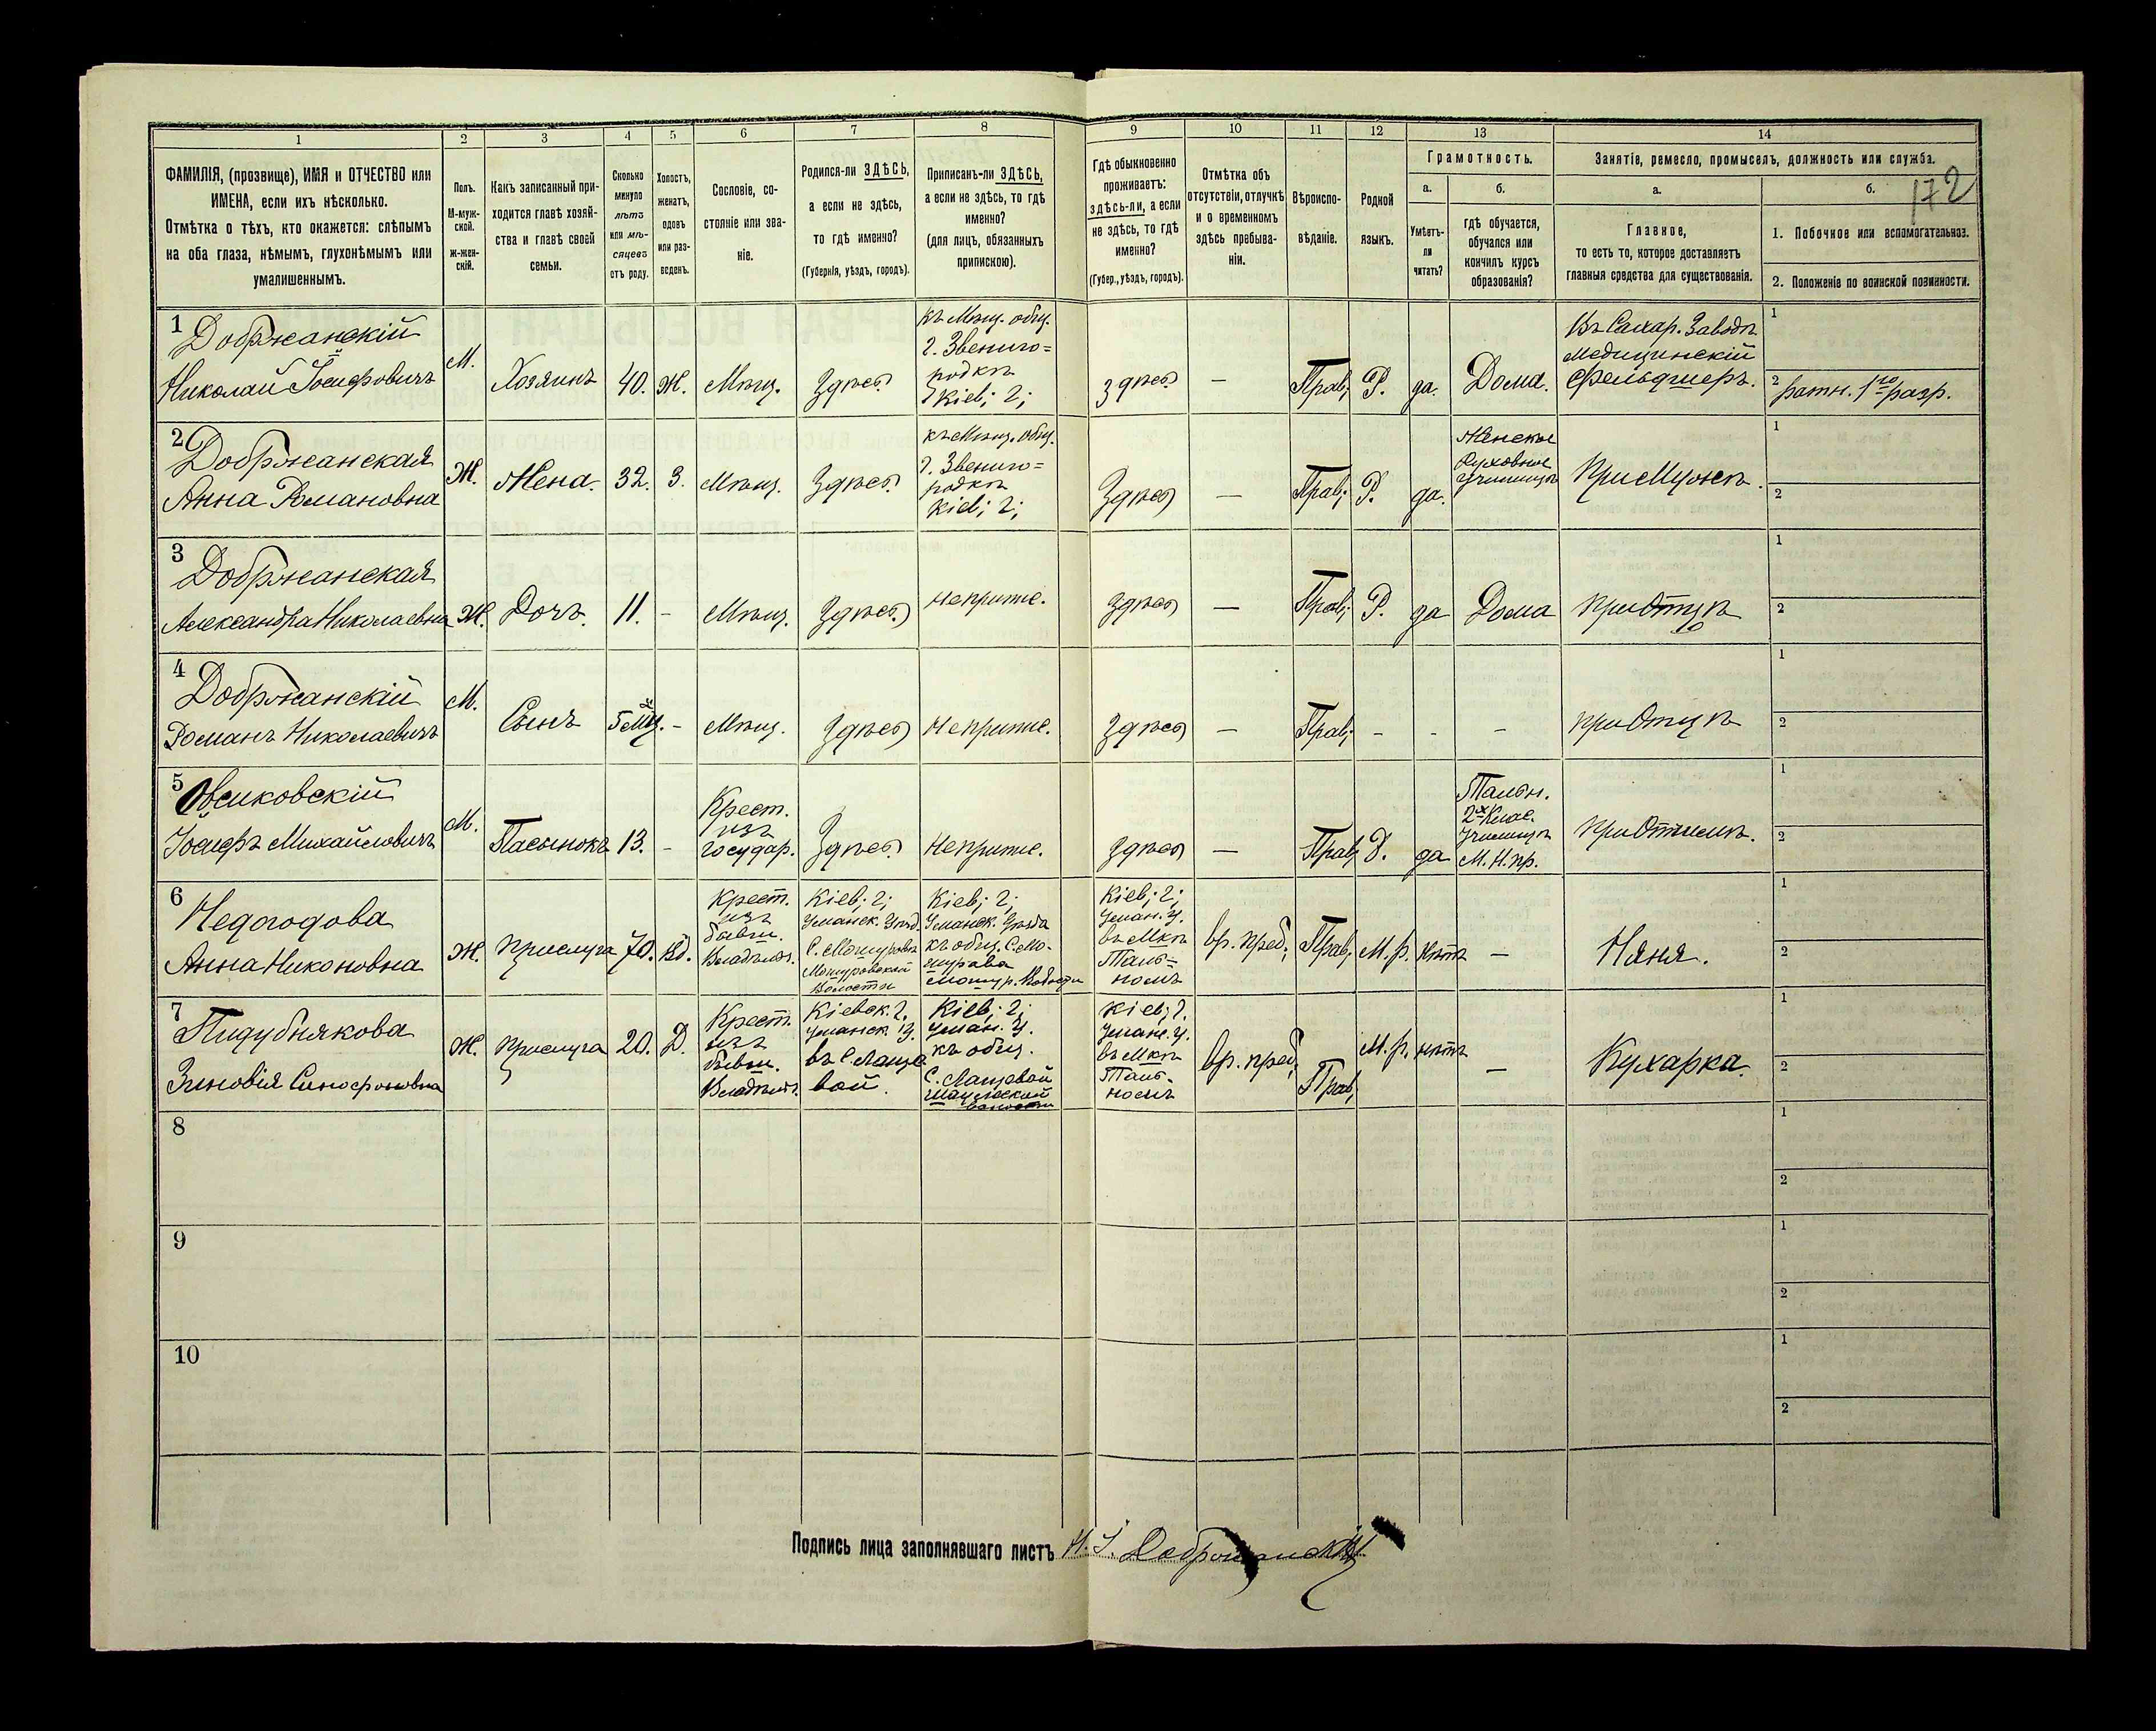 1
2
3
4
5
6
7
8
9
10
11
12
13
14
ФАМИЛІЯ, (прозвище), ИМЯ и ОТЧЕСТВО или
ИМЕНА, если ихъ нѣсколько.
Отмѣтка о тѣхъ, кто окажется: слѣпымъ
на оба глаза, нѣмымъ, глухонѣмымъ или
умалишеннымъ.
Полъ.
М-муж-
ской.
Ж-жен-
скій.
Какъ записанный при-
ходится главѣ хозяй-
ства и главѣ своей
семьи.
Сколько
минуло
лѣтъ
или мѣ-
сяцевъ
отъ роду.
Холостъ,
женатъ,
вдовъ
или раз-
веденъ.
Сословіе, со-
стояніе или зва-
ніе.
Родился-ли ЗДѢСЬ,
а если не здѣсь,
то гдѣ именно?
(Губернія, уѣздъ, городъ).
Приписанъ-ли ЗДѢСЬ,
а если не здѣсь, то гдѣ
именно?
(для лицъ, обязанныхъ
припискою).
Гдѣ обыкновенно
проживаетъ:
здѣсь-ли, а если
не здѣсь, то гдѣ
именно?
(Губер., уѣздъ, городъ).
Отмѣтка объ
отсутствіи, отлучкѣ
и о временномъ
здѣсь пребыва-
ніи.
Вѣроиспо-
вѣданіе.
Родной
языкъ.
Грамотность.
а.
б.
Умѣетъ-
ли
читать?
гдѣ обучается,
обучался или
кончилъ курсъ
образованія?
Занятіе, ремесло, промыселъ, должность или служба.
а.
б.
172
Главное,
то есть то, которое доставляетъ
главныя средства для существованія.
1. Побочное или вспомогательное.
2. Положеніе по воинской повинности.
1
Добржанскій
Николай Іосифовичъ
М.
Хозяинъ
40.
Ж.
Мѣщ.
Здѣсь
къ Мѣщ. общ.
г. Звениго=
родкѣ
Кіев; г;
здѣсь
—
Прав;
Р.
да.
Дома.
Въ Сахар. Заводѣ
Медицинскій
Фельдшеръ.
1
2 ратн. 1го разр.
2
Добржанская
Анна Романовна
Ж.
Жена.
32.
З.
Мѣщ.
Здѣсь
къ Мѣщ. общ.
г. Звениго=
родкѣ
Кіев; г;
Здѣсь
—
Прав;
Р.
да.
Женское
Духовное
Училище
При Мужѣ.
1
2
3
Добржанская
Александра Николаевна
Ж.
Дочь.
11.
-
Мѣщ.
Здѣсь
Неприпис.
здѣсь
—
Прав;
Р.
да
Дома
при Отцѣ
1
2
4
Добржанскій
Романъ Николаевичъ
М.
Сынъ
5 мц.
-
Мѣщ.
Здѣсь
Неприпис.
здѣсь
—
Прав;
-
-
-
при Отцѣ
1
2
5
Овсиковскій
Іосифъ Михайловичъ
М.
Пасынокъ
13.
-
Крест.
изъ
государ.
Здѣсь
Неприпис.
здѣсь
—
Прав;
Р.
да
Тальн.
2х Клас.
Училище
М. Н. пр.
при Отчимѣ.
1
2
6
Недогодова
Анна Никоновна
Ж.
Прислуга
70.
Вд.
Крест.
изъ
бывш.
Владѣльч.
Кіев; г;
Уманск. Уѣзд.
С. Машуровѣ
Машуровской
Волости
Кіев; г;
Уманск. Уѣзда
къ общ. С. Ма-
шурова
Машур. Волости
Кіев; г;
Уман. У.
въ Мкѣ
Таль=
номъ
вр. преб;
Прав;
М. р.
нѣтъ
—
Няня.
1
2
7
Пидубнякова
Зиновія Сиософоновна
Ж.
Прислуга
20.
Д.
Крест.
изъ
бывш.
Владѣльч.
Кіевск. г.
Уманск. У.
въ С. Лаще
вой.
Кіев; г;
Уман. У.
къ общ.
С. Лащевой
волости
Кіев; г.
Уман. У.
въ Мкѣ
Таль-
номъ
вр. преб;
Прав;
М. р.
нѣтъ
—
Кухарка.
1
2
8
1
2
9
1
2
10
1
2
Подпись лица заполнявшаго листъ Н. І. Добржанскій